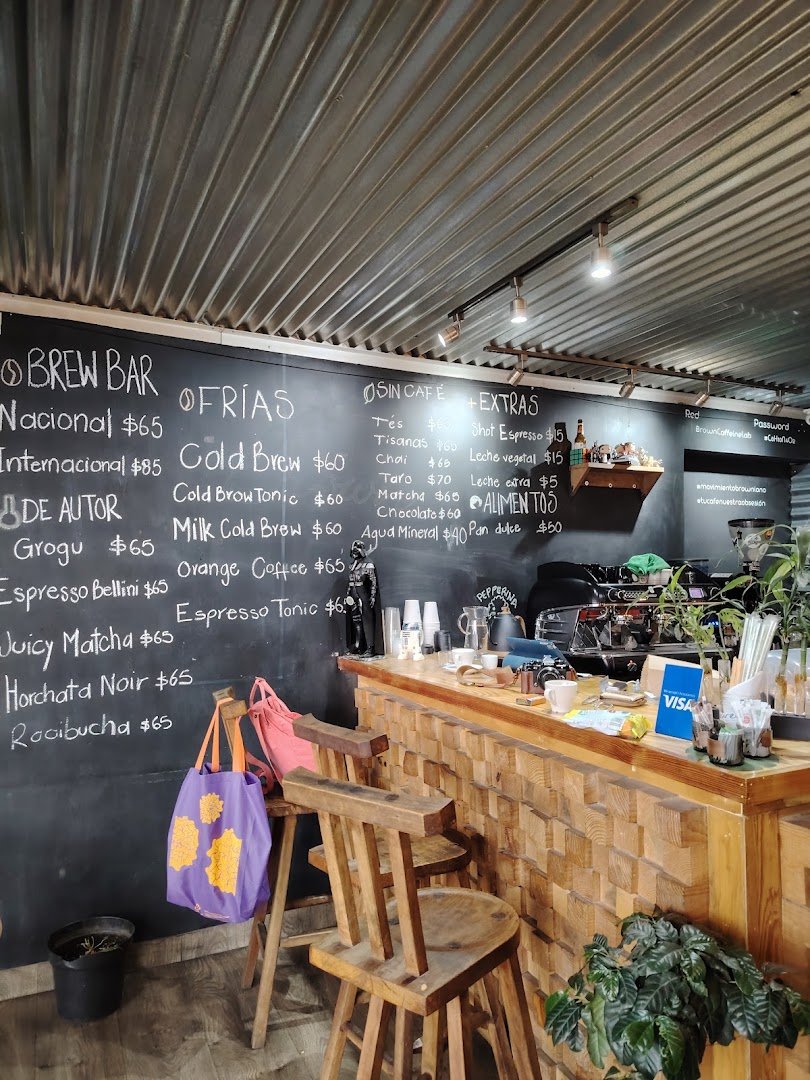 BREW BAR
Nacional $65
Internacional $85
DE AUTOR
Grogu $65
Espresso Bellini $65
Juicy Matcha $65
Horchata Noir $65
Rooibucha $65
FRÍAS
Cold Brew $60
Cold Brow Tonic $60
Milk Cold Brew $60
Orange Coffee $65
Espresso Tonic
SIN CAFÉ
Tés
Tisanas $65
Chai $65
Taro $70
Matcha $65
Chocolate $60
Agua Mineral $40
+EXTRAS
Shot Espresso $15
Leche vegetal $15
Leche extra $5
ALIMENTOS
Pan dulce $50
Red Password
BrownCaffeineLab
#movimientobrowniano
#tucafenuestraobsesión
VISA